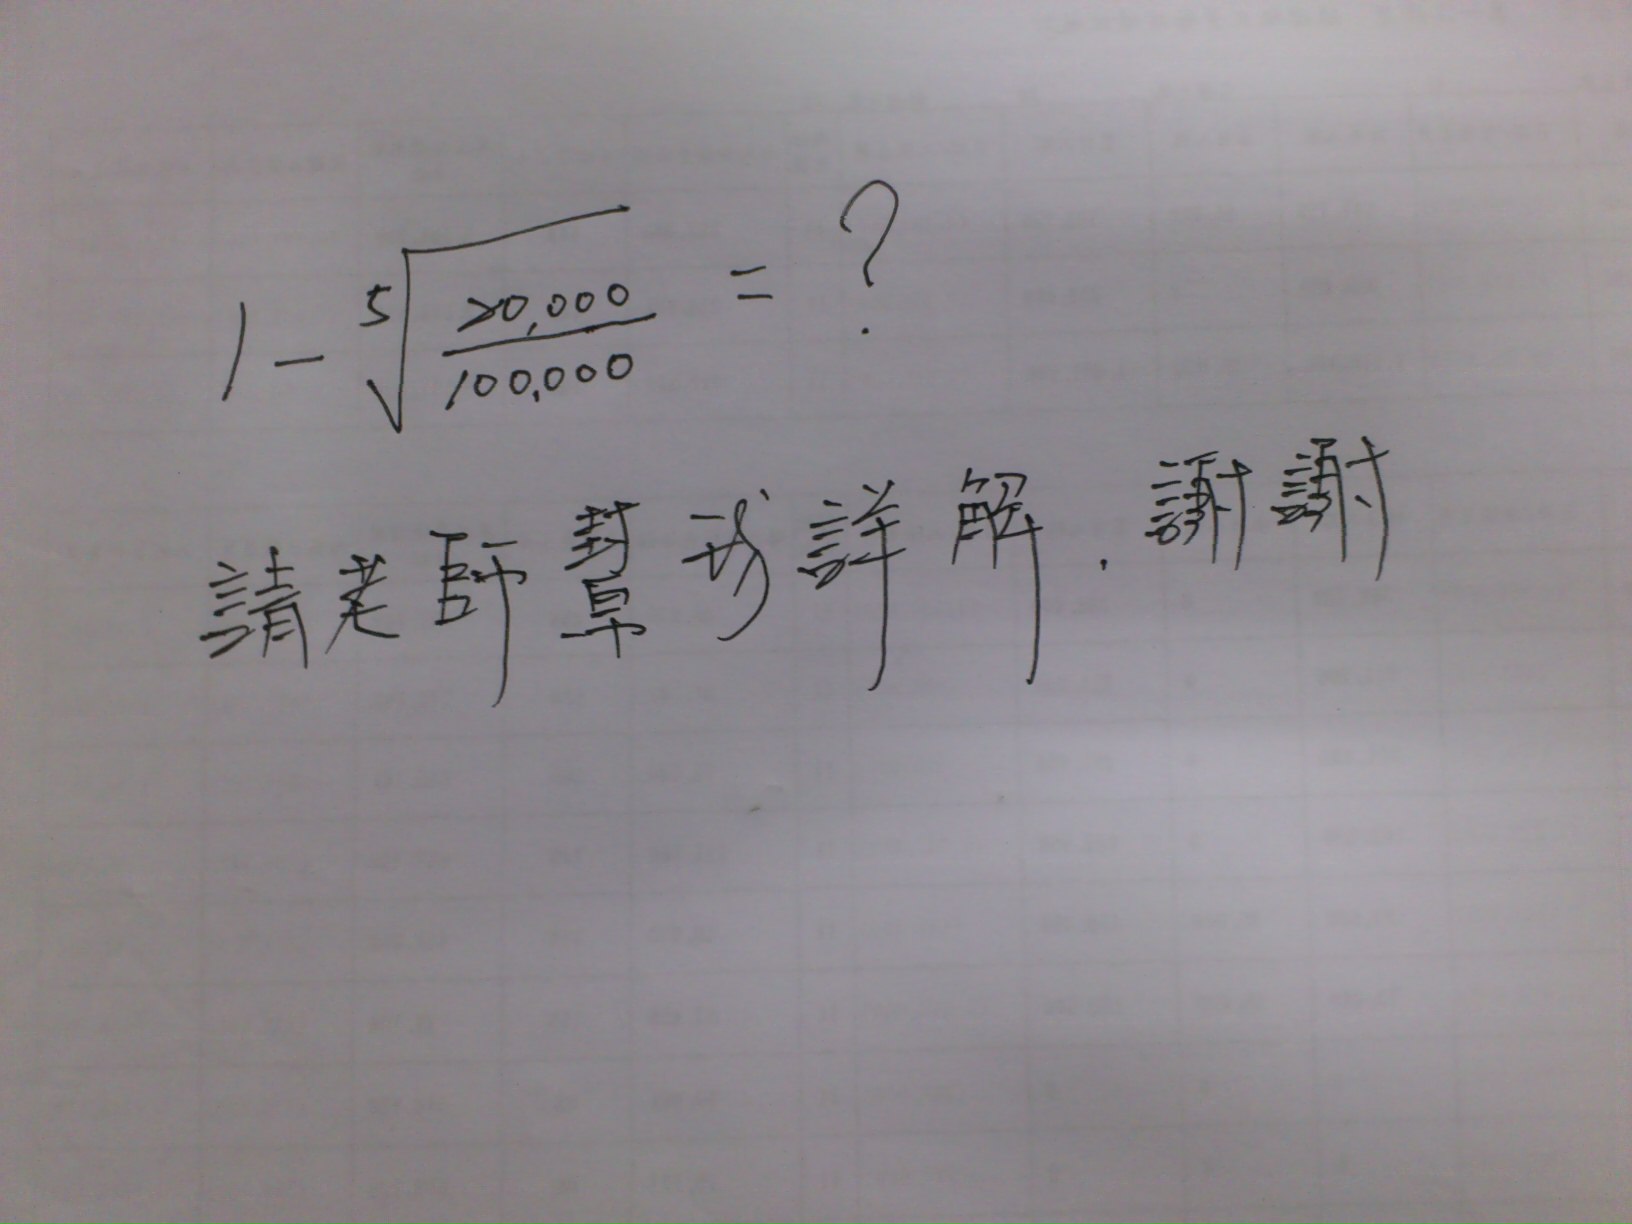 1 - ⁵√(20,000/100,000) = ?
請老師幫我詳解.謝謝